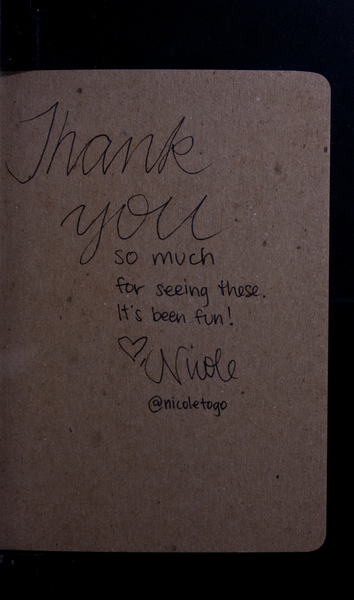 Thank
you
so much
for seeing these.
It's been fun!
♡ Nicole
@nicoletogo